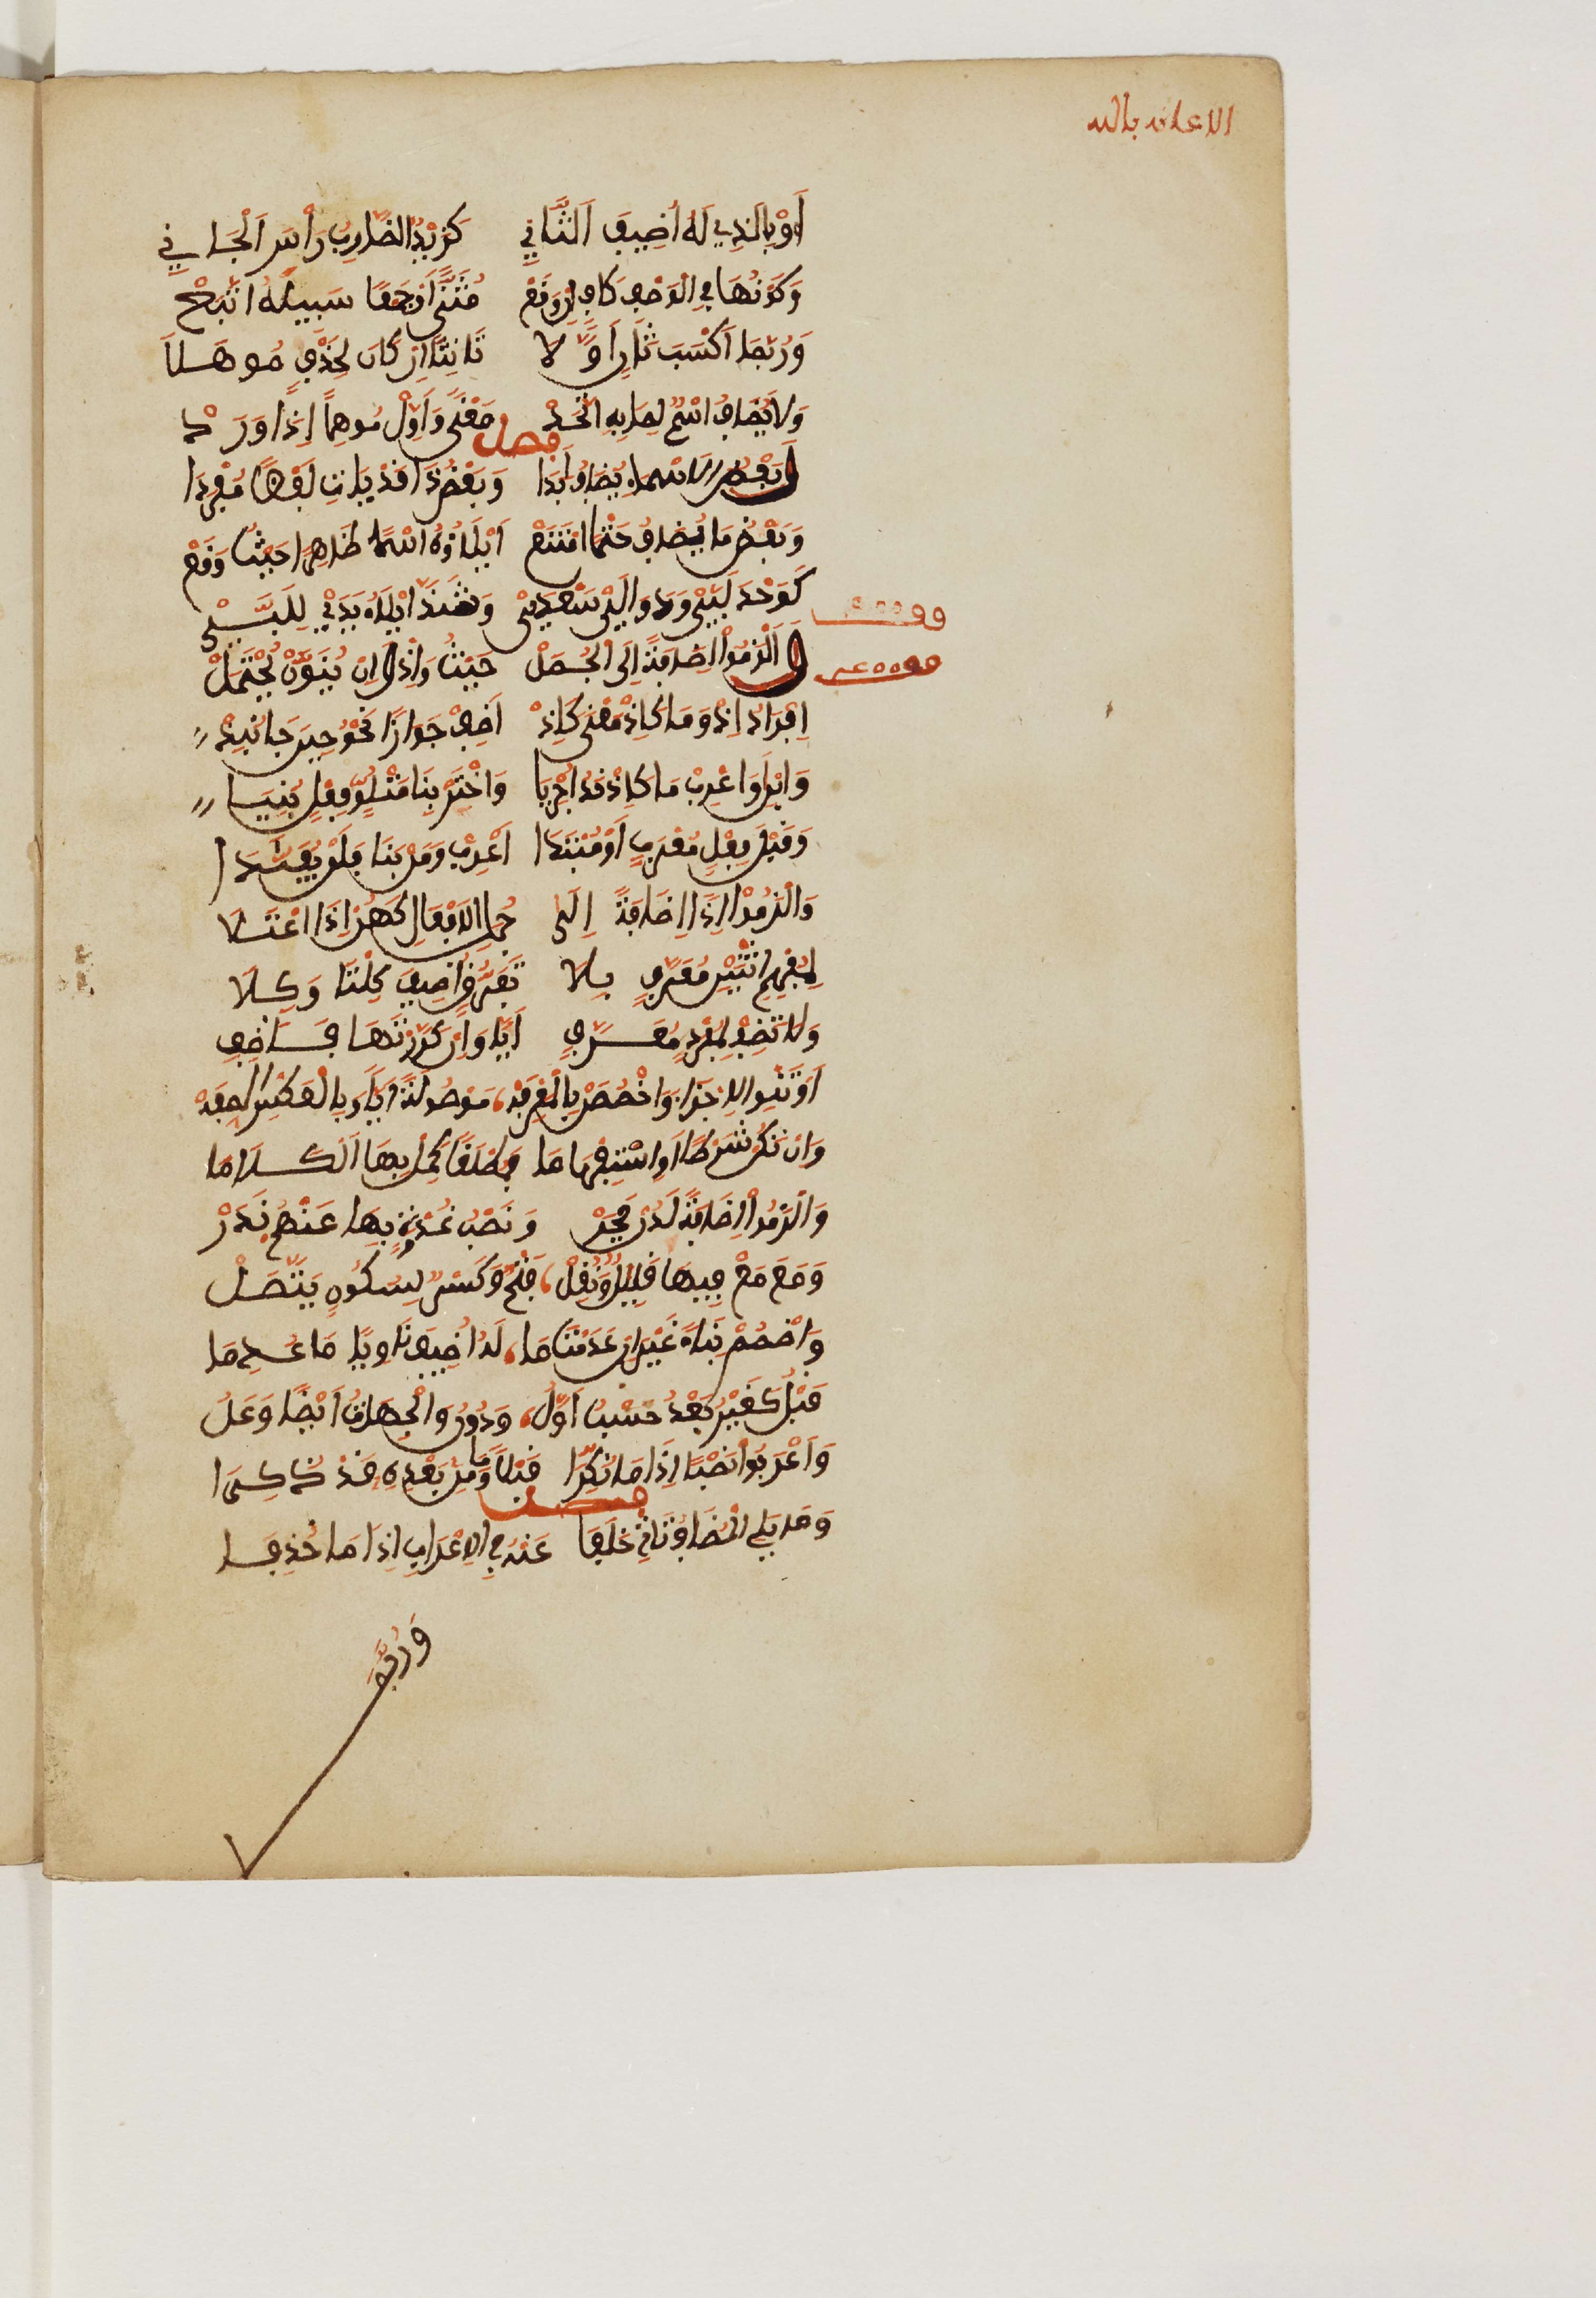 الاعانه بالله
أَوْ بِالَّذِي لَهُ أُضِيفَ الثَّانِي كَزَيْدٌ الضَّارِبُ رَأْسِ الْجَانِي
وَكَوْنُهَا فِي الْوَصْفِ كَافٍ إِنْ وَقَعْ مُثَنًّى أَوْ جَمْعًا سَبِيلَهُ اتَّبَعْ
وَرُبَّمَا أَكْسَبَ ثَانٍ أَوَّلَا تَأْنِيثًا إِنْ كَانَ لِحَذْفٍ مُوهَلَا
وَلَا يُضَافُ اسْمٌ لِمَا بِهِ اتَّحَدْ مَعْنًى وَأَوِّلْ مُوهِمًا إِذَا وَرَدْ
فصل
وَبَعْضُ الْاَسْمَاءِ يُضَافُ أَبَدَا وَبَعْضُ ذَا قَدْ يَاتِ لَفْظًا مُفْرَدَا
وَبَعْضُ مَا يُضَافُ حَتْمًا امْتَنَعْ إِيلَاؤُهُ اسْمًا ظَاهِرًا حَيْثُ وَقَعْ
كَوَحْدَ لَبَّيْ وَدَوَالَيْ سَعْدَيْ وَشَذَّ إِيلَاءُ يَدَيْ لِلَبَّيْ
وَأَلْزَمُوا إِضَافَةً إِلَى الْجُمَلْ حَيْثُ وَإِذْ وَإِنْ يُنَوَّنْ يُحْتَمَلْ
إِفْرَادُ إِذْ وَمَا كَإِذْ مَعْنًى كَإِذْ أَضِفْ جَوَازًا نَحْوُ حِينَ جَا نُبِذْ
وَابْنِ أَوَ اعْرِبْ مَا كَإِذْ قَدُ اجْرِيَا وَاخْتَرْ بِنَا مَتْلُوِّ فِعْلٍ بُنِيَا
وَقَبْلَ فِعْلٍ مُعْرَبٍ أَوْ مُبْتَدَا أَعْرِبْ وَمَنْ بَنَا فَلَنْ يُفَنَّدَا
وَأَلْزَمُوا إِذَا إِضَافَةً إِلَى جُمَلِ الْاَفْعَالِ كَهُنْ إِذَا اعْتَلَا
لِمُفْهِمِ اثْنَيْنِ مُعَرَّفٍ بِلَا تَفَرُّقٍ أُضِيفَ كِلْتَا وَكِلَا
وَلَا تُضِفْ لِمُفْرَدٍ مُعَرَّفِ أَيًّا وَإِنْ كَرَّرْتَهَا فَأَضِفِ
أَوْ تَنْوِ الِاجْزَا وَاخْصُصَنْ بِالْمَعْرِفَهْ مَوْصُولَةً أَيًّا وَبِالْعَكْسِ الصِّفَهْ
وَإِنْ تَكُنْ شَرْطًا أَوِ اسْتِفْهَامَا فَمُطْلَقًا كَمِّلْ بِهَا الْكَلَامَا
وَأَلْزَمُوا إِضَافَةً لَدُنْ فَجَرْ وَنَصْبُ غُدْوَةٍ بِهَا عَنْهُمْ نَدَرْ
وَمَعَ مَعْ فِيهَا قَلِيلٌ وَنُقِلْ فَتْحٌ وَكَسْرٌ لِسُكُونٍ يَتَّصِلْ
وَاضْمُمْ بِنَاءً غَيْرًا انْ عَدِمْتَ مَا لَهُ أُضِيفَ نَاوِيًا مَا عُدِمَا
قَبْلُ كَغَيْرُ بَعْدُ حَسْبُ أَوَّلُ وَدُونُ وَالْجِهَاتُ أَيْضًا وَعَلُ
وَأَعْرَبُوا نَصْبًا إِذَا مَا نُكِّرَا قَبْلًا وَمَا مِنْ بَعْدِهِ قَدْ ذُكِرَا
فصل
وَمَا يَلِي الْمُضَافَ يَاتِي خَلَفَا عَنْهُ فِي الِاعْرَابِ إِذَا مَا حُذِفَا
وَرُبَّمَا